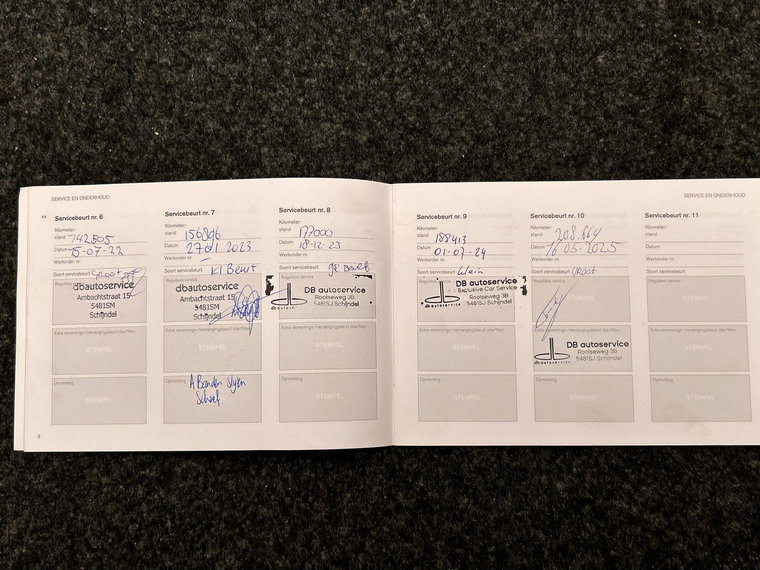 SERVICE EN ONDERHOUD
Servicebeurt nr. 6
Kilometer-
stand 142505
Datum 15-07-22
Werkorder nr.
Soort servicebeurt GROOT
Reguliere service
dbautoservice
Ambachtstraat 15
5481SM
Schijndel
Extra verversings-/vervangingsbeurt olie/filter
STEMPEL
Opmerking
STEMPEL
6
Servicebeurt nr. 7
Kilometer-
stand 156896
Datum 27 01 2023
Werkorder nr.
Soort servicebeurt Kl Beurt
Reguliere service
dbautoservice
Ambachtstraat 15
5481SM
Schijndel
Extra verversings-/vervangingsbeurt olie/filter
STEMPEL
Opmerking
A Banden slijten
Scheef
Servicebeurt nr. 8
Kilometer-
stand 177000
Datum 18-12-23
Werkorder nr.
Soort servicebeurt gr beurt
Reguliere service
DB autoservice
Rooiseweg 3B
5481SJ Schijndel
db autoservice
Extra verversings-/vervangingsbeurt olie/filter
STEMPEL
Opmerking
STEMPEL
SERVICE EN ONDERHOUD
Servicebeurt nr. 9
Kilometer-
stand 188413
Datum 01-07-24
Werkorder nr.
Soort servicebeurt klein
Reguliere service
DB autoservice
Exclusive Car Service
Rooiseweg 3B
5481SJ Schijndel
db autoservice
Extra verversings-/vervangingsbeurt olie/filter
STEMPEL
Opmerking
STEMPEL
Servicebeurt nr. 10
Kilometer-
stand 208.664
Datum 05-2025
Werkorder nr.
Soort servicebeurt GROOT
Reguliere service
STEMPEL
Extra verversings-/vervangingsbeurt olie/filter
DB autoservice
Rooiseweg 3B
5481SJ Schijndel
db autoservice
Opmerking
STEMPEL
Servicebeurt nr. 11
Kilometer-
stand
Datum
Werkorder nr.
Soort servicebeurt
Reguliere service
STEMPEL
Extra verversings-/vervangingsbeurt olie/filter
STEMPEL
Opmerking
STEMPEL